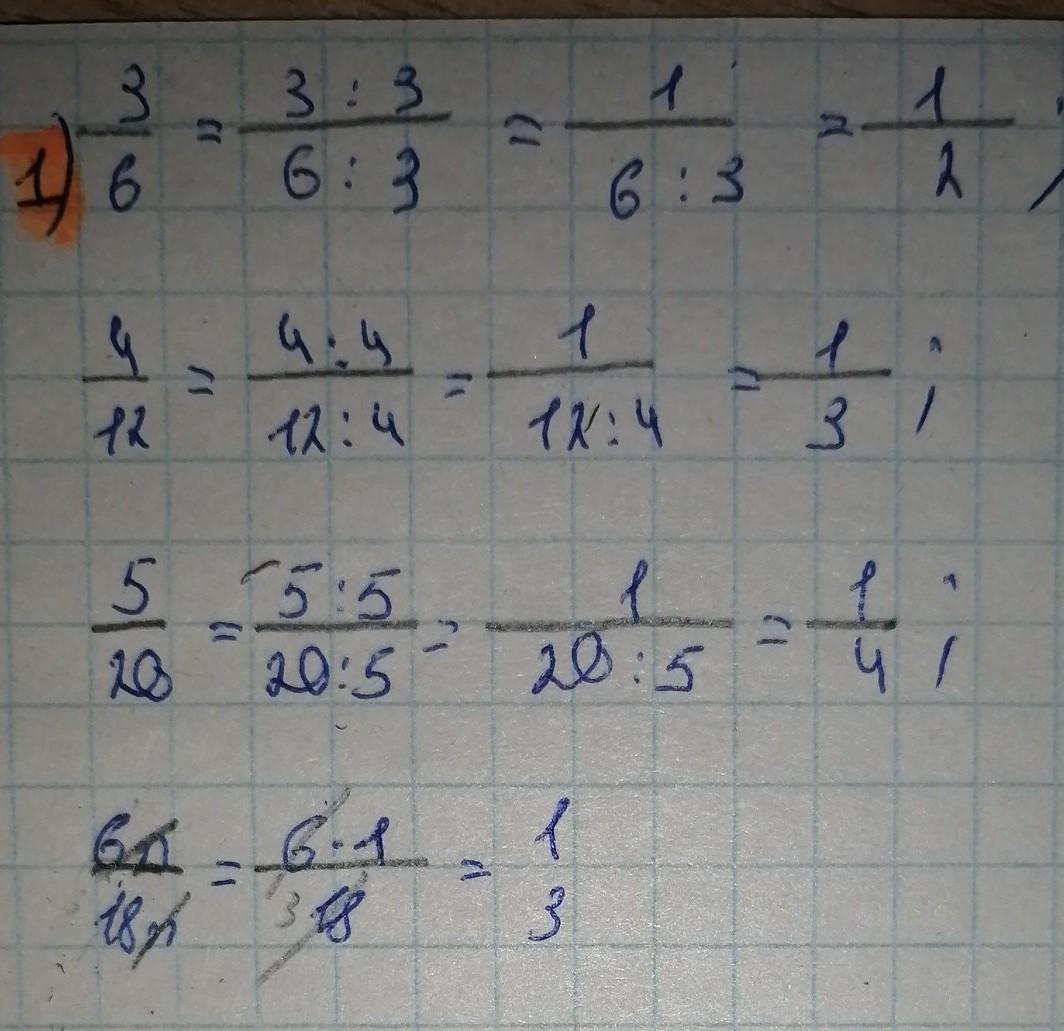 1) 3/6 = 3 : 3/6 : 3 = 1/6 : 3 = 1/2 ;
4/12 = 4 : 4/12 : 4 = 1/12 : 4 = 1/3 ;
5/20 = 5 : 5/20 : 5 = 1/20 : 5 = 1/4 ;
6n/18n = 6 · 1/3 18 = 1/3